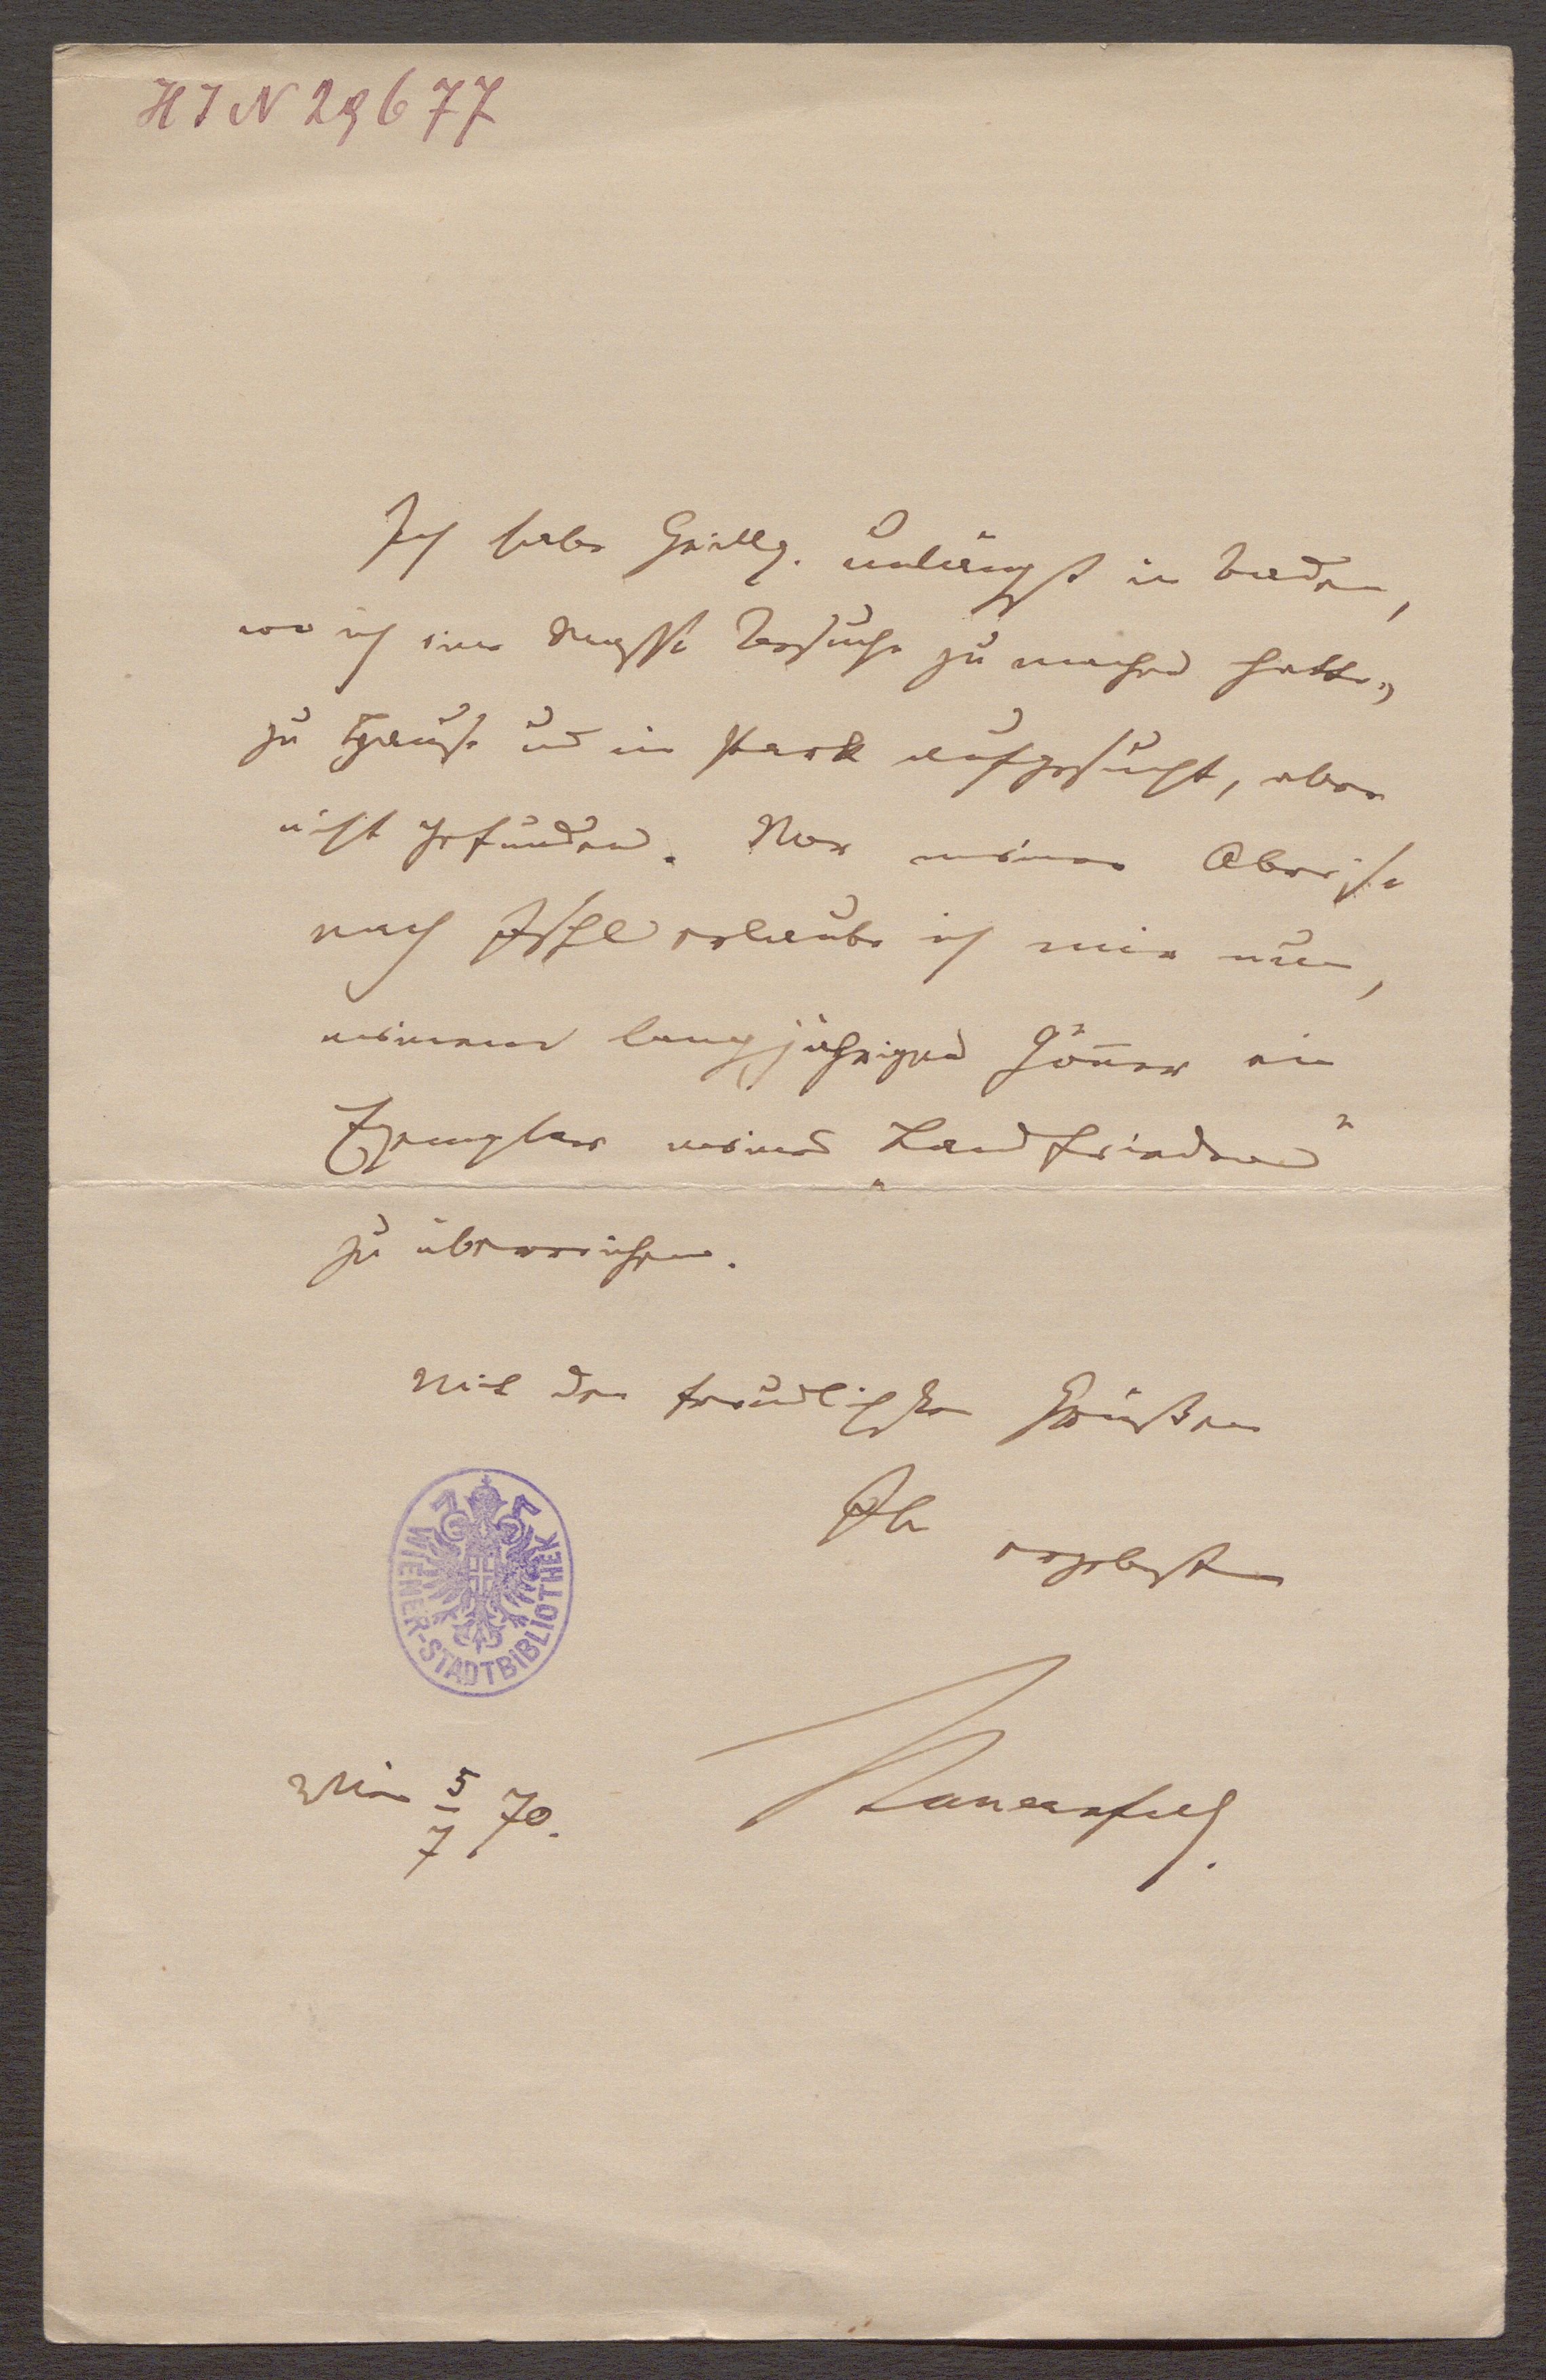 HIN 29677
Ich habe Grillp. unlängst in Baden,
wo ich eine Masse Besuche zu machen hatte,
zu Hause und im Park aufgesucht, aber
nicht gefunden. Vor meiner Abreise
nach Ischl erlaube ich mir nun,
meinem langjährigen Gönner ein
Exemplar meines „Landfrieden"
zu überreichen.
Mit den freundlichsten Grüßen
Ihr
ergebenster
WIENER-STADTBIBLIOTHEK
Wien 5/7 70.
Bauernfeld.